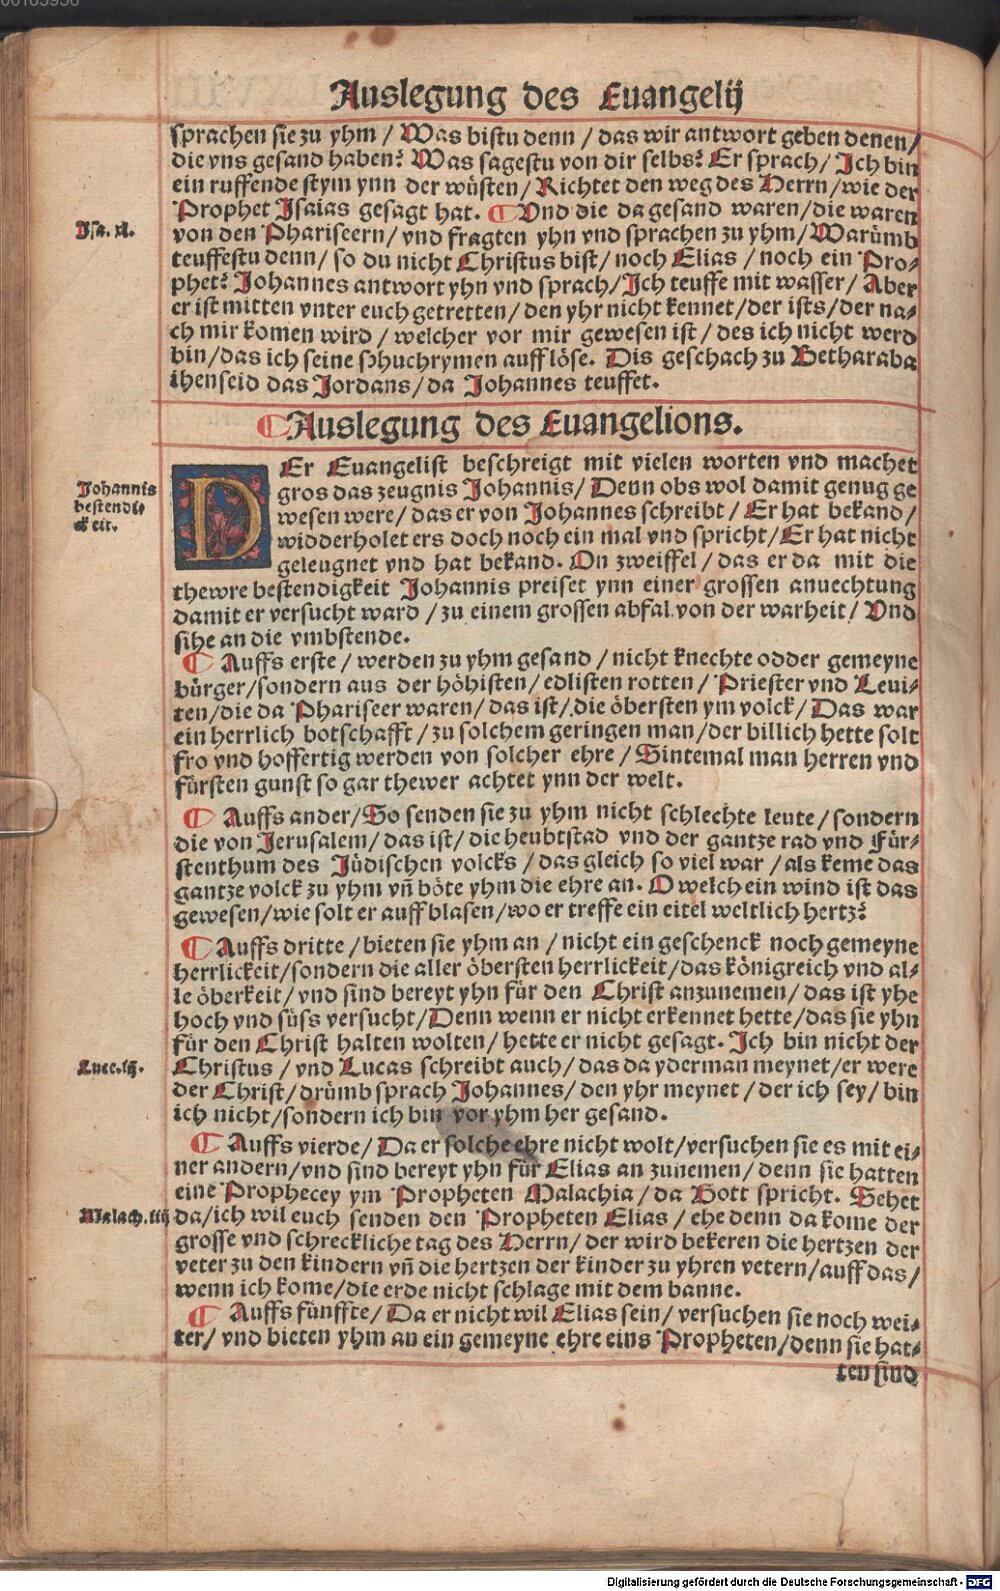 00105956
Auslegung des Euangelij
sprachen sie zu yhm / Was bistu denn / das wir antwort geben denen /
die vns gesand haben? Was sagestu von dir selbs? Er sprach / Ich bin
ein ruffende stym ynn der wüsten / Richtet den weg des Herrn / wie der
Prophet Isaias gesagt hat. ¶ Vnd die da gesand waren / die waren
Isa. xl.
von den Phariseern / vnd fragten yhn vnd sprachen zu yhm / Warümb
teuffestu denn / so du nicht Christus bist / noch Elias / noch ein Pro⸗
phet? Johannes antwort yhn vnd sprach / Ich teuffe mit wasser / Aber
er ist mitten vnter euch getretten / den yhr nicht kennet / der ists / der na⸗
ch mir komen wird / welcher vor mir gewesen ist / des ich nicht werd
bin / das ich seine schuchrymen aufflöse. Dis geschach zu Betharaba
ihenseid das Jordans / da Johannes teuffet.
¶ Auslegung des Euangelions.
DEr Euangelist beschreigt mit vielen worten vnd machet
Johannis
bestendi⸗
ckeit.
gros das zeugnis Johannis / Denn obs wol damit genug ge
wesen were / das er von Johannes schreibt / Er hat bekand /
widderholet ers doch noch ein mal vnd spricht / Er hat nicht
geleugnet vnd hat bekand. On zweiffel / das er da mit die
thewre bestendigkeit Johannis preiset ynn einer grossen anuechtung
damit er versucht ward / zu einem grossen abfal von der warheit / Vnd
sihe an die vmbstende.
¶ Auffs erste / werden zu yhm gesand / nicht knechte odder gemeyne
bürger / sondern aus der höhisten / edlisten rotten / Priester vnd Leui⸗
ten / die da Phariseer waren / das ist / die öbersten ym volck / Das war
ein herrlich botschafft / zu solchem geringen man / der billich hette solt
fro vnd hoffertig werden von solcher ehre / Sintemal man herren vnd
fürsten gunst so gar thewer achtet ynn der welt.
¶ Auffs ander / So senden sie zu yhm nicht schlechte leute / sondern
die von Jerusalem / das ist / die heubtstad vnd der gantze rad vnd Für⸗
stenthum des Jüdischen volcks / das gleich so viel war / als keme das
gantze volck zu yhm vñ böte yhm die ehre an. O welch ein wind ist das
gewesen / wie solt er auffblasen / wo er treffe ein eitel weltlich hertz?
¶ Auffs dritte / bieten sie yhm an / nicht ein geschenck noch gemeyne
herrlickeit / sondern die aller öbersten herrlickeit / das königreich vnd al⸗
le öberkeit / vnd sind bereyt yhn für den Christ anzunemen / das ist yhe
hoch vnd süss versucht / Denn wenn er nicht erkennet hette / das sie yhn
für den Christ halten wolten / hette er nicht gesagt. Ich bin nicht der
Luce. iij.
Christus / vnd Lucas schreibt auch / das da yderman meynet / er were
der Christ / drümb sprach Johannes / den yhr meynet / der ich sey / bin
ich nicht / sondern ich bin vor yhm her gesand.
¶ Auffs vierde / Da er solche ehre nicht wolt / versuchen sie es mit ei⸗
ner andern / vnd sind bereyt yhn für Elias an zunemen / denn sie hatten
eine Prophecey ym Propheten Malachia / da Gott spricht. Sehet
Malach. iiij
da / ich wil euch senden den Propheten Elias / ehe denn da kome der
grosse vnd schreckliche tag des Herrn / der wird bekeren die hertzen der
veter zu den kindern vñ die hertzen der kinder zu yhren vetern / auff das /
wenn ich kome / die erde nicht schlage mit dem banne.
¶ Auffs fünffte / Da er nicht wil Elias sein / versuchen sie noch wei⸗
ter / vnd bieten yhm an ein gemeyne ehre eins Propheten / denn sie hat⸗
ten sind
Digitalisierung gefördert durch die Deutsche Forschungsgemeinschaft - DFG